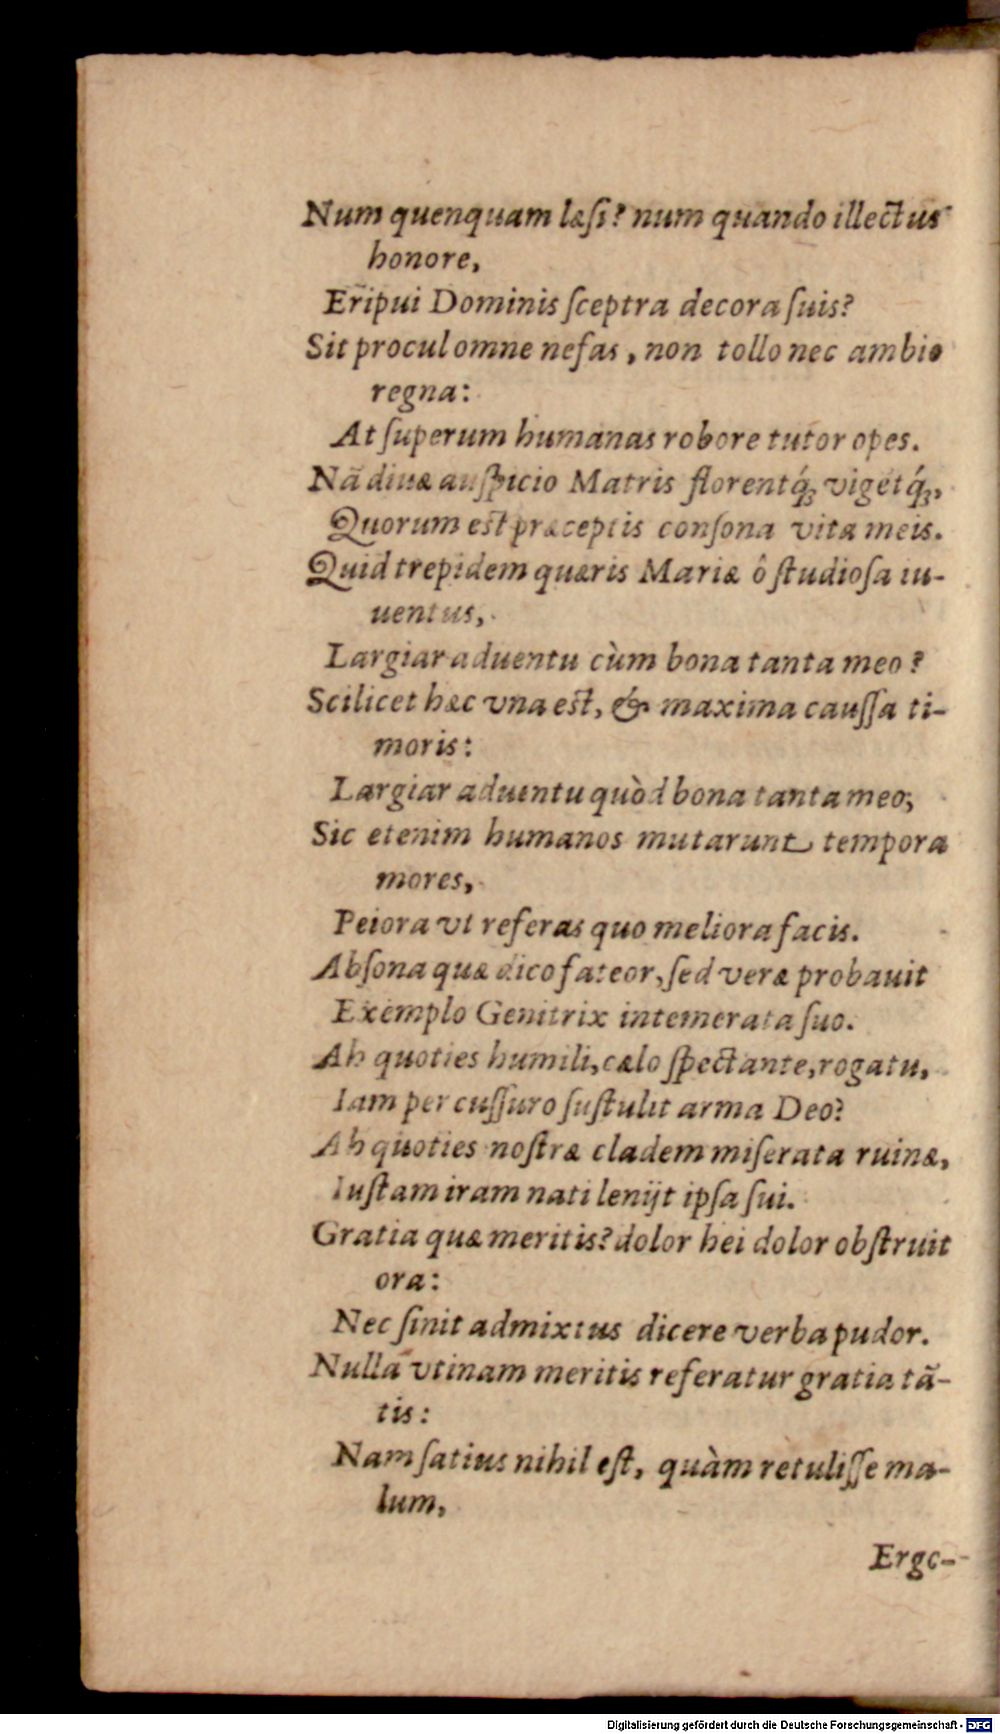 Num quenquam læſi? num quando illectus
honore,
Eripui Dominis ſceptra decora ſuis?
Sit procul omne nefas, non tollo nec ambio
regna:
At ſuperum humanas robore tutor opes.
Nã diuæ auſpicio Matris florentq́ꝫ vigetq́ꝫ,
Quorum eſt præceptis conſona vita meis.
Quid trepidem quæris Mariæ ô ſtudioſa iu-
uentus,
Largiar aduentu cùm bona tanta meo?
Scilicet hæc vna eſt, & maxima cauſſa ti-
moris:
Largiar aduentu quòd bona tanta meo;
Sic etenim humanos mutarunt tempora
mores,
Peiora vt referas quo meliora facis.
Abſona quæ dico fateor, ſed veræ probauit
Exemplo Genitrix intemerata ſuo.
Ah quoties humili, cælo ſpectante, rogatu,
Iam percuſſuro ſuſtulit arma Deo?
Ah quoties noſtræ cladem miſerata ruinæ,
Iuſtam iram nati lenijt ipſa ſui.
Gratia quæ meritis? dolor hei dolor obſtruit
ora:
Nec ſinit admixtus dicere verba pudor.
Nulla vtinam meritis referatur gratia tã-
tis:
Nam ſatius nihil eſt, quàm retuliſſe ma-
lum,
Ergo-
Digitalisierung gefördert durch die Deutsche Forschungsgemeinschaft - DFG